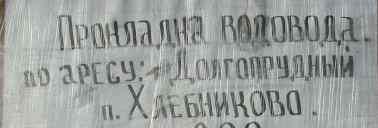 Прокладка водовода.
по аресу: г. Долгопрудный
п. Хлебниково.